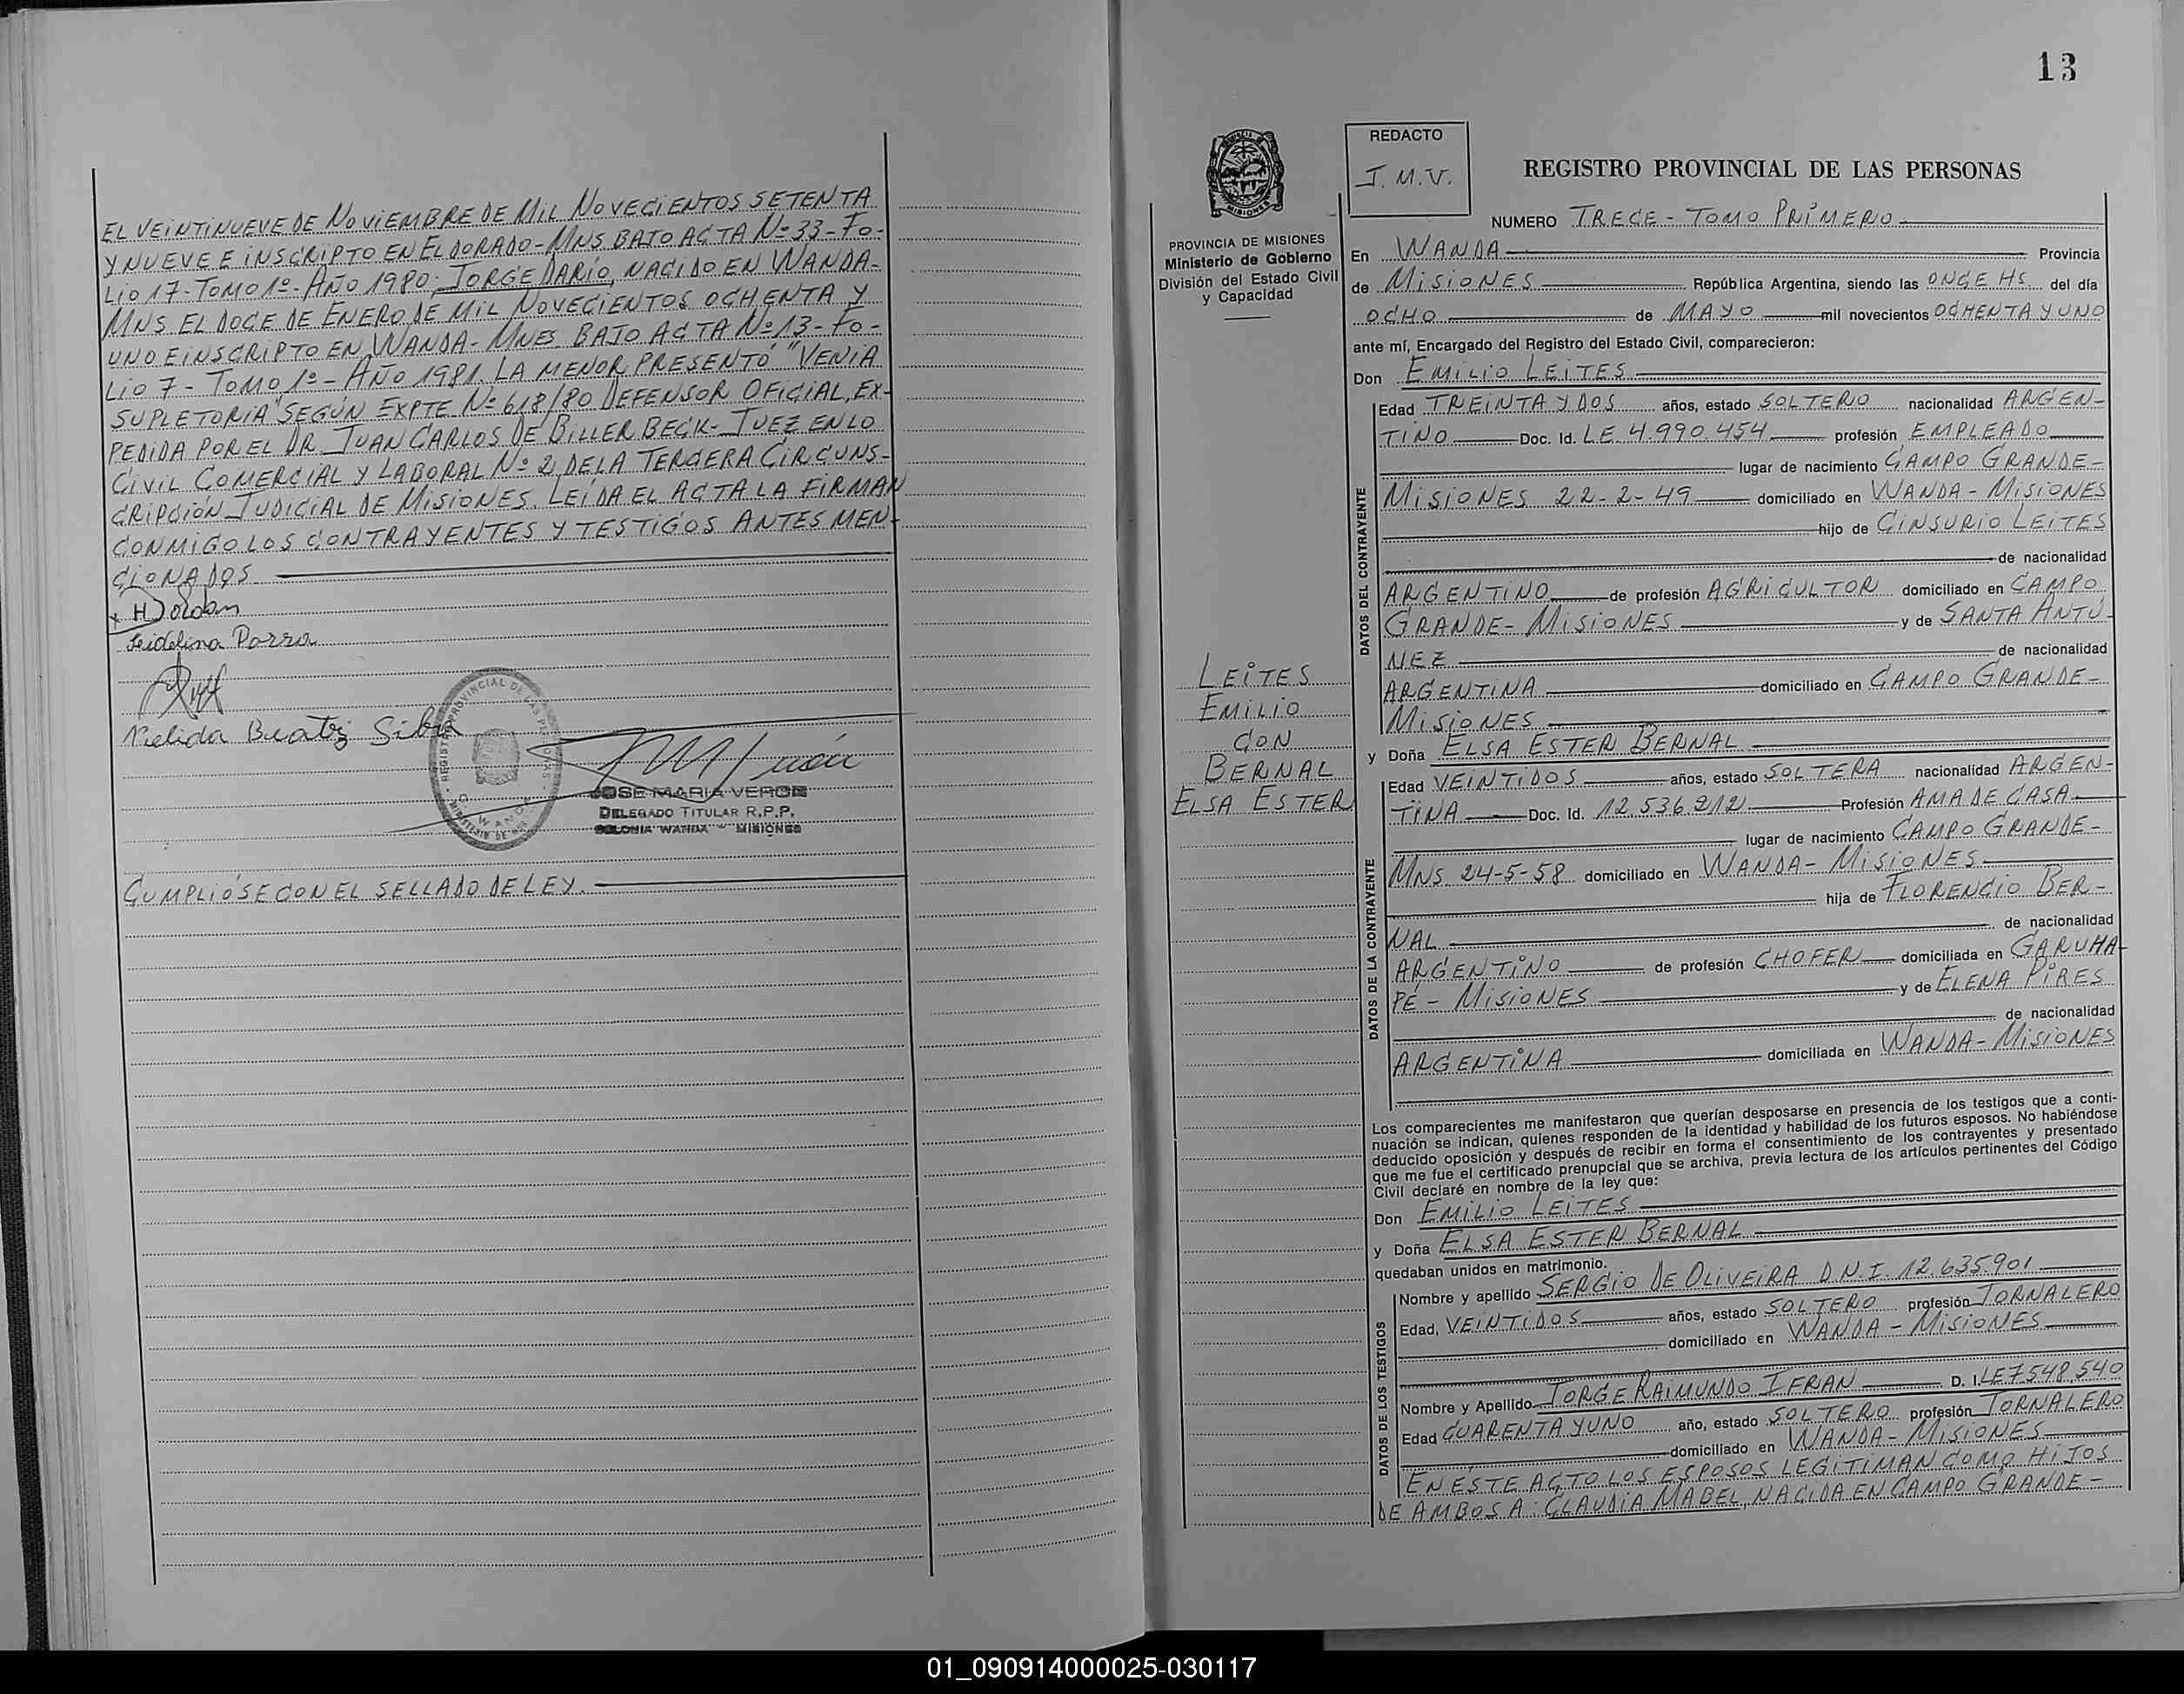 EL VEINTINUEVE DE NOVIEMBRE DE MIL NOVECIENTOS SETENTA
Y NUEVE E INSCRIPTO EN ELDORADO - MNS BAJO ACTA Nº 33 - FO-
LIO 17 - TOMO 1º - AÑO 1980; JORGE DARÍO, NACIDO EN WANDA -
MNS EL DOCE DE ENERO DE MIL NOVECIENTOS OCHENTA Y
UNO E INSCRIPTO EN WANDA - MNES. BAJO ACTA Nº 13 - FO-
LIO 7 - TOMO 1º - AÑO 1981. LA MENOR PRESENTÓ "VENIA
SUPLETORIA" SEGÚN EXPTE Nº 618/80 DEFENSOR OFICIAL, EX-
PEDIDA POR EL DR. JUAN CARLOS DE BILLERBECK - JUEZ EN LO
CIVIL COMERCIAL Y LABORAL Nº 2, DE LA TERCERA CIRCUNS-
CRIPCIÓN JUDICIAL DE MISIONES. LEÍDA EL ACTA LA FIRMAN
CONMIGO LOS CONTRAYENTES Y TESTIGOS ANTES MEN-
CIONADOS
Parra
Nelida Beatriz Silva
REGISTRO PROVINCIAL DE LAS PERSONAS
JOSE MARIA VERON
DELEGADO TITULAR R.P.P.
COLONIA WANDA - MISIONES
CUMPLIÓSE CON EL SELLADO DE LEY.
13
REDACTO
J.M.V.
MISIONES
PROVINCIA DE MISIONES
Ministerio de Gobierno
División del Estado Civil
y Capacidad
LEITES
EMILIO
CON
BERNAL
ELSA ESTER
REGISTRO PROVINCIAL DE LAS PERSONAS
NUMERO TRECE - TOMO PRIMERO
En WANDA Provincia
de MISIONES República Argentina, siendo las ONCE HS del día
OCHO de MAYO mil novecientos OCHENTA Y UNO
ante mí, Encargado del Registro del Estado Civil, comparecieron:
Don EMILIO LEITES
DATOS DEL CONTRAYENTE
Edad TREINTA Y DOS años, estado SOLTERO nacionalidad ARGEN-
TINO Doc. Id. L.E. 4.990.454 profesión EMPLEADO
lugar de nacimiento CAMPO GRANDE -
MISIONES 22-2-49 domiciliado en WANDA - MISIONES
hijo de CINSURIO LEITES
de nacionalidad
ARGENTINO de profesión AGRICULTOR domiciliado en CAMPO
GRANDE - MISIONES y de SANTA ANTU-
NEZ de nacionalidad
ARGENTINA domiciliado en CAMPO GRANDE -
MISIONES
y Doña ELSA ESTER BERNAL
DATOS DE LA CONTRAYENTE
Edad VEINTIDOS años, estado SOLTERA nacionalidad ARGEN-
TINA Doc. Id. 12.536.212 Profesión AMA DE CASA
lugar de nacimiento CAMPO GRANDE -
MNS. 24-5-58 domiciliado en WANDA - MISIONES
hija de FLORENCIO BER-
NAL de nacionalidad
ARGENTINO de profesión CHOFER domiciliada en GARUHA-
PÉ - MISIONES y de ELENA PIRES
de nacionalidad
ARGENTINA domiciliada en WANDA - MISIONES
Los comparecientes me manifestaron que querían desposarse en presencia de los testigos que a conti-
nuación se indican, quienes responden de la identidad y habilidad de los futuros esposos. No habiéndose
deducido oposición y después de recibir en forma el consentimiento de los contrayentes y presentado
que me fue el certificado prenupcial que se archiva, previa lectura de los artículos pertinentes del Código
Civil declaré en nombre de la ley que:
Don EMILIO LEITES
y Doña ELSA ESTER BERNAL
quedaban unidos en matrimonio.
DATOS DE LOS TESTIGOS
Nombre y apellido SERGIO DE OLIVEIRA D.N.I. 12.635.901
Edad, VEINTIDOS años, estado SOLTERO profesión JORNALERO
domiciliado en WANDA - MISIONES
Nombre y Apellido JORGE RAIMUNDO IFRAN D. I. LE 7548.540
Edad CUARENTA Y UNO año, estado SOLTERO profesión JORNALERO
domiciliado en WANDA - MISIONES
EN ÉSTE ACTO LOS ESPOSOS LEGITIMAN COMO HIJOS
DE AMBOS A: CLAUDIA MABEL, NACIDA EN CAMPO GRANDE -
01_090914000025-030117